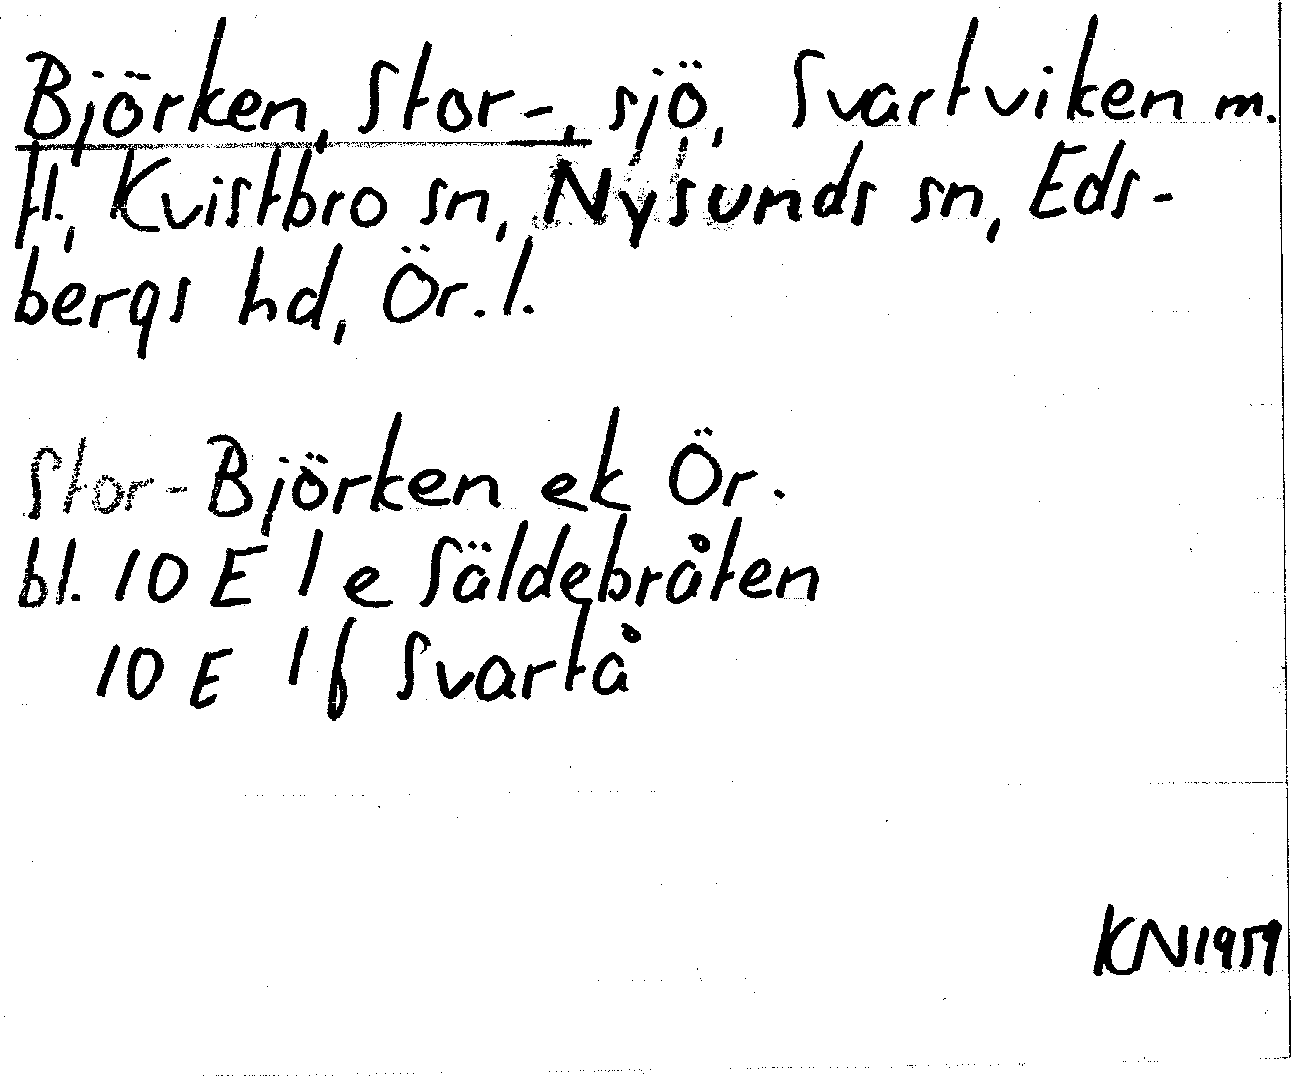 Björken, Stor-, sjö, Svartviken m.
fl., Kvistbro sn, Nysunds sn, Eds-
bergs hd, Ör. l.
Stor-Björken ek Ör.
bl. 10 E 1 e Säldebråten
10 E 1 f Svartå
KN1959